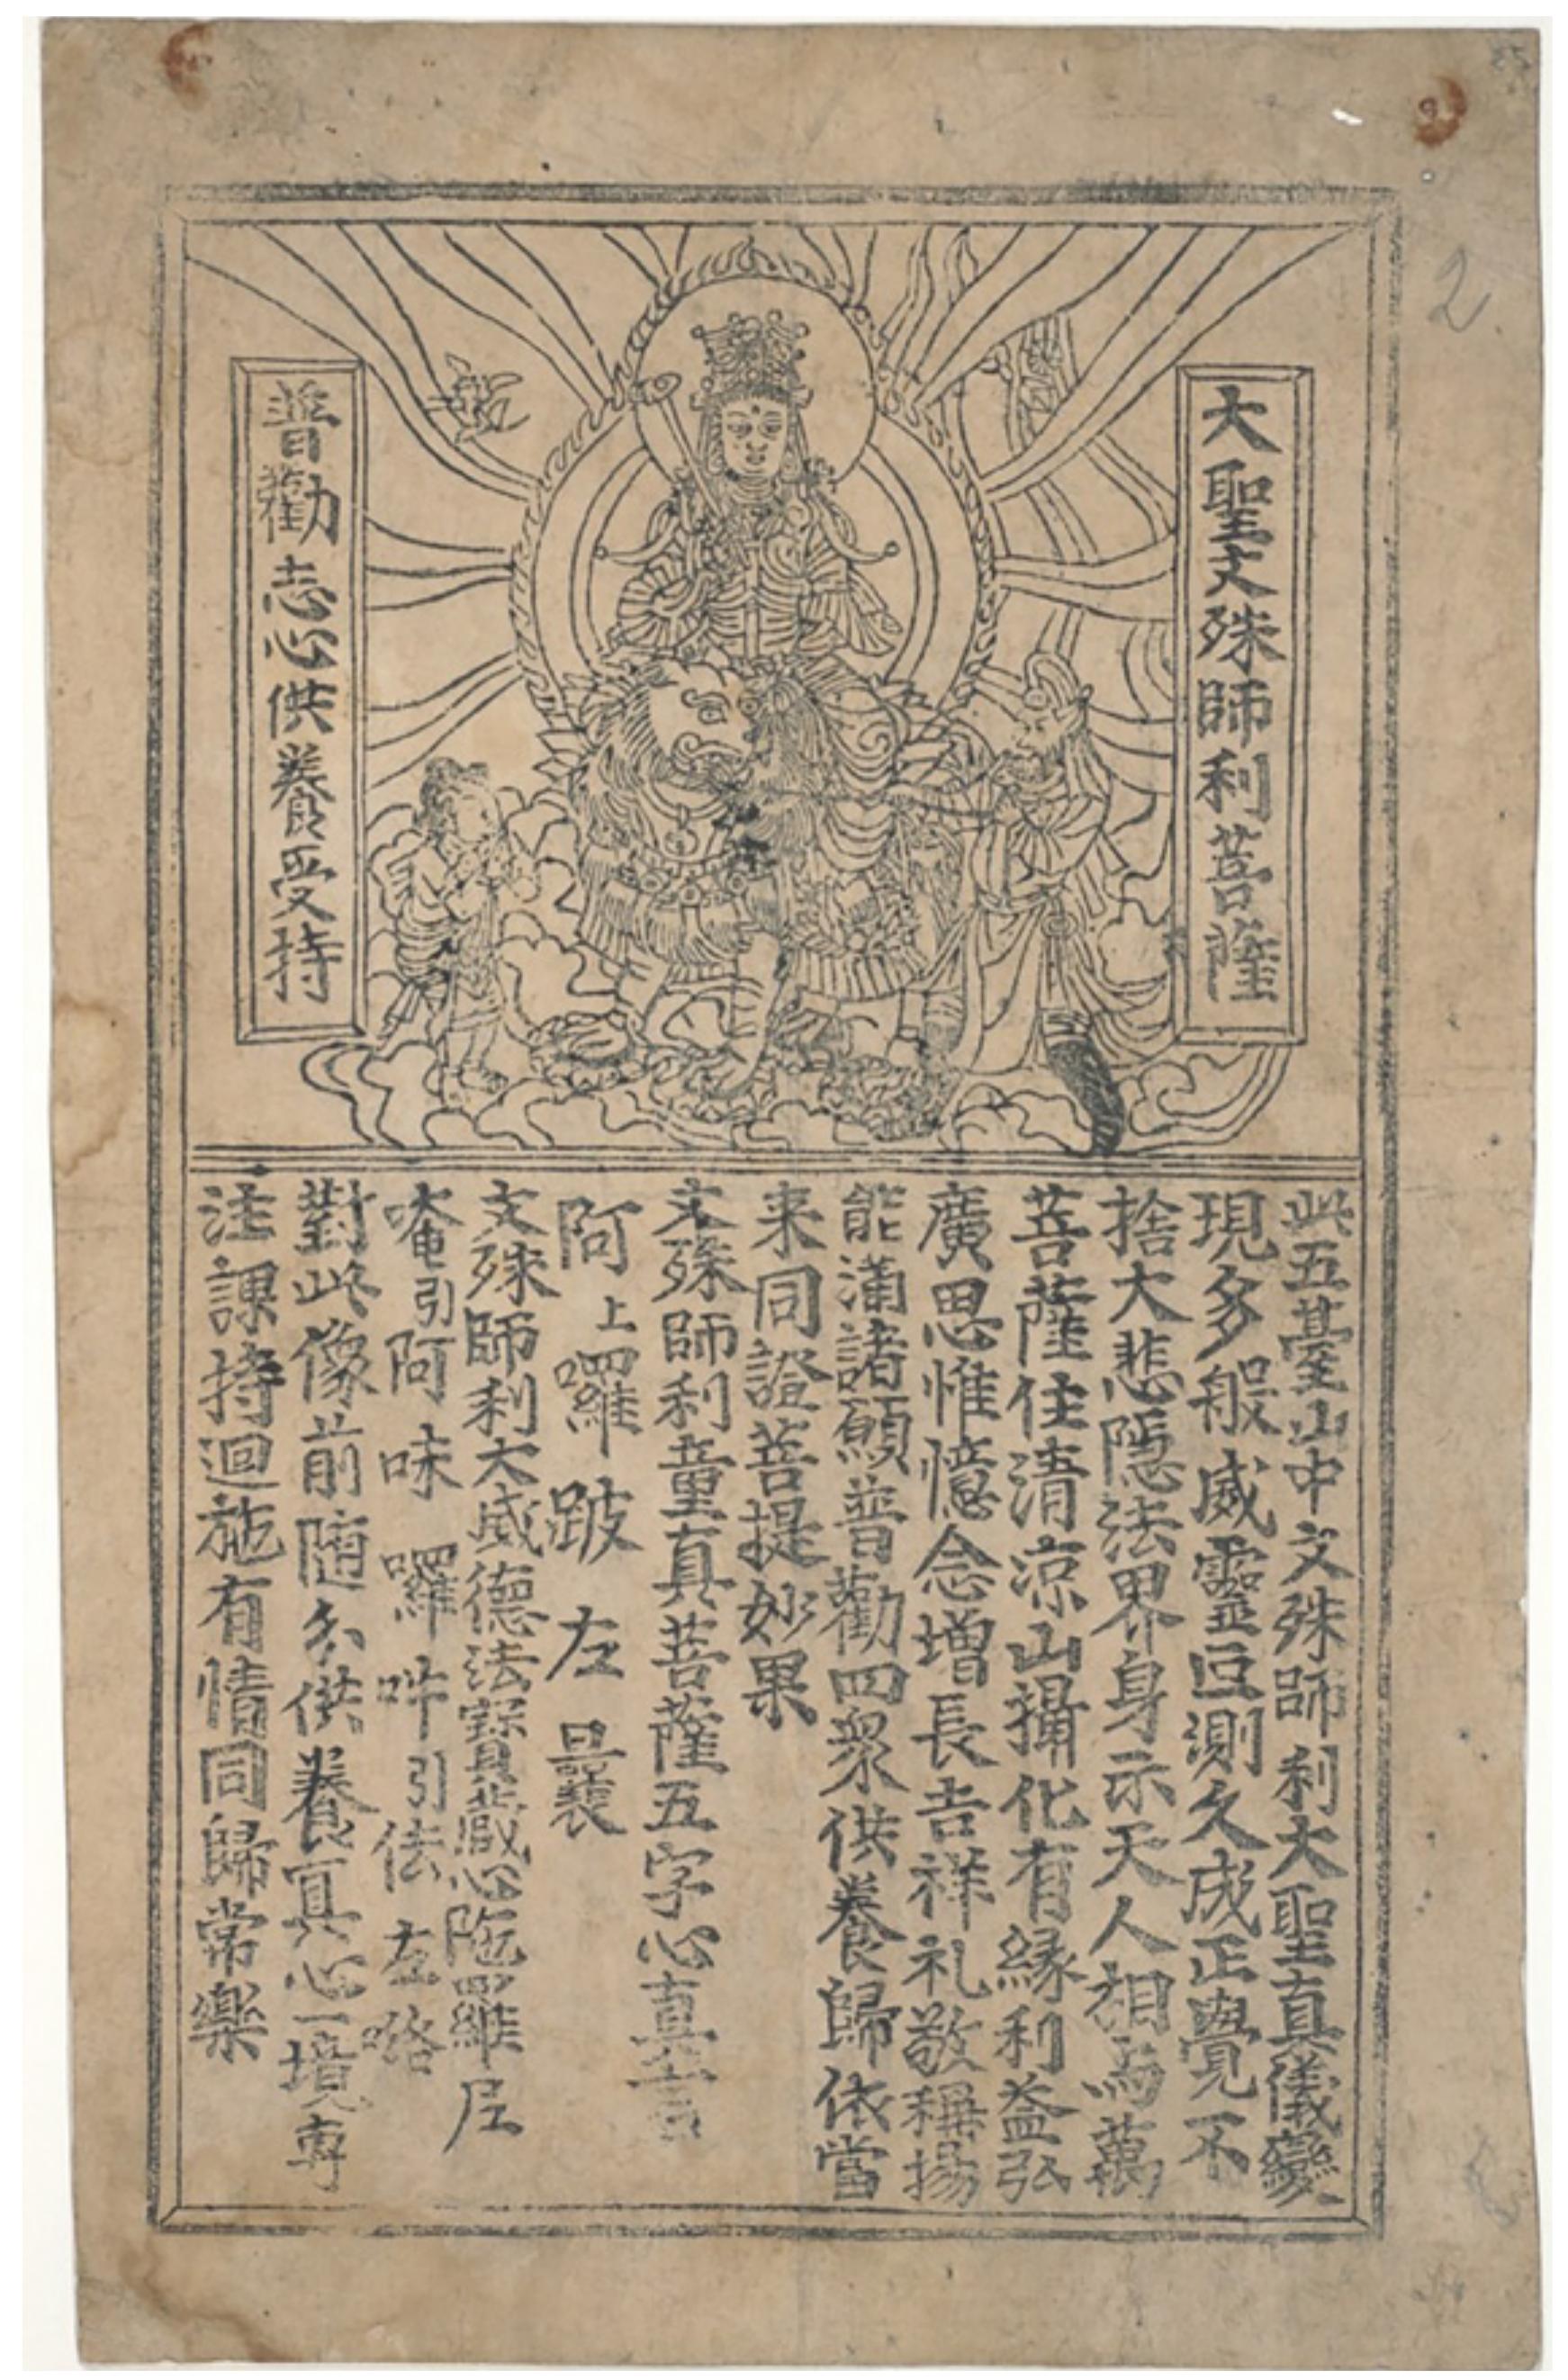 大聖文殊師利菩薩
普勸志心供養受持
此五臺山中文殊師利大聖真儀變
現多般威靈叵測久成正覺不
捨大悲隱法界身示天人相與萬
菩薩住清涼山攝化有緣利益弘
廣思惟憶念增長吉祥礼敬稱揚
能滿諸願普勸四衆供養歸依當
来同證菩提妙果
文殊師利童真菩薩五字心真言
阿上囉跛左曩
文殊師利大威德法寶藏心陁羅尼
唵引阿味囉吽引佉左咯
對此像前随分供養真心一境專
注課持迴施有情同歸常樂
2